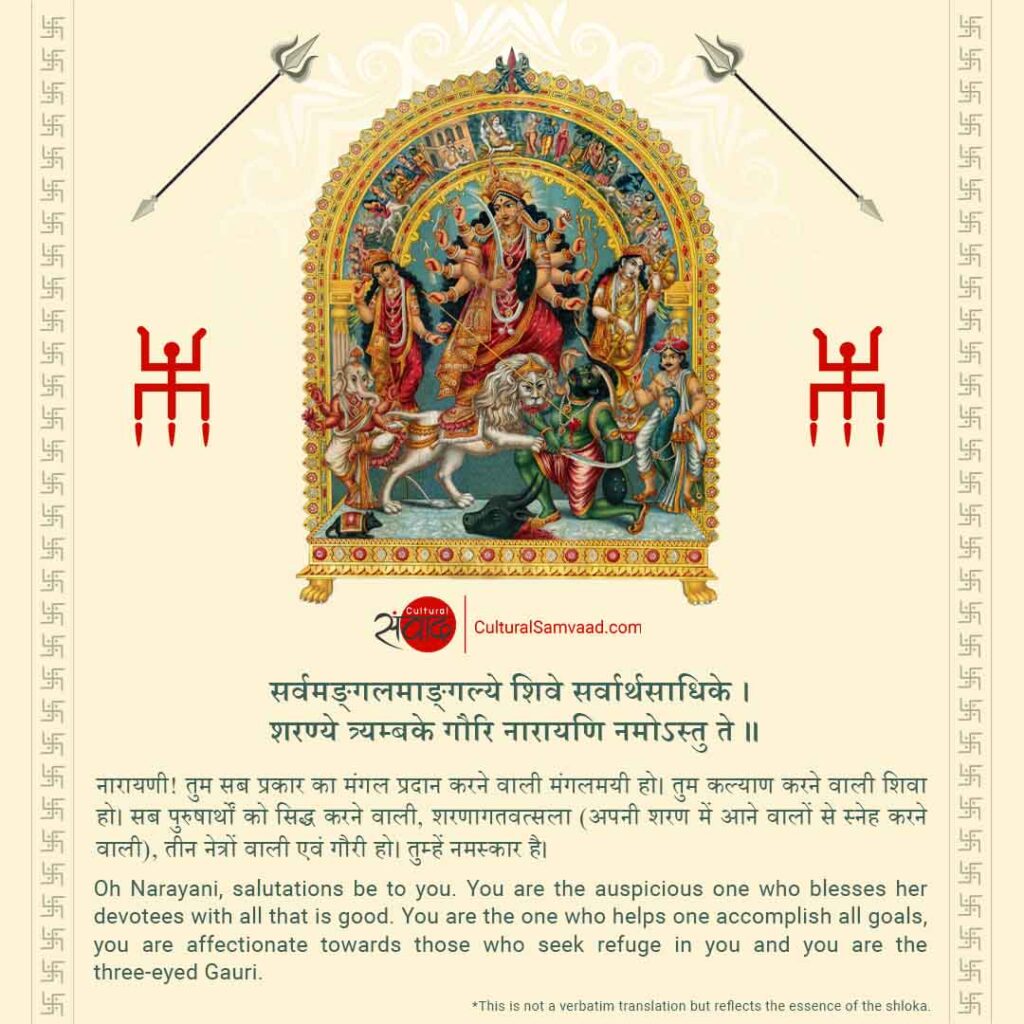 Cultural
संवाद
CulturalSamvaad.com
सर्वमङ्गलमाङ्गल्ये शिवे सर्वार्थसाधिके ।
शरण्ये त्र्यम्बके गौरि नारायणि नमोऽस्तु ते ॥
नारायणी! तुम सब प्रकार का मंगल प्रदान करने वाली मंगलमयी हो। तुम कल्याण करने वाली शिवा
हो। सब पुरुषार्थों को सिद्ध करने वाली, शरणागतवत्सला (अपनी शरण में आने वालों से स्नेह करने
वाली), तीन नेत्रों वाली एवं गौरी हो। तुम्हें नमस्कार है।
Oh Narayani, salutations be to you. You are the auspicious one who blesses her
devotees with all that is good. You are the one who helps one accomplish all goals,
you are affectionate towards those who seek refuge in you and you are the
three-eyed Gauri.
*This is not a verbatim translation but reflects the essence of the shloka.